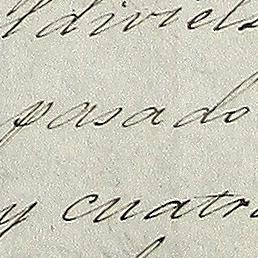 ldiviels
pasado
y cuatro